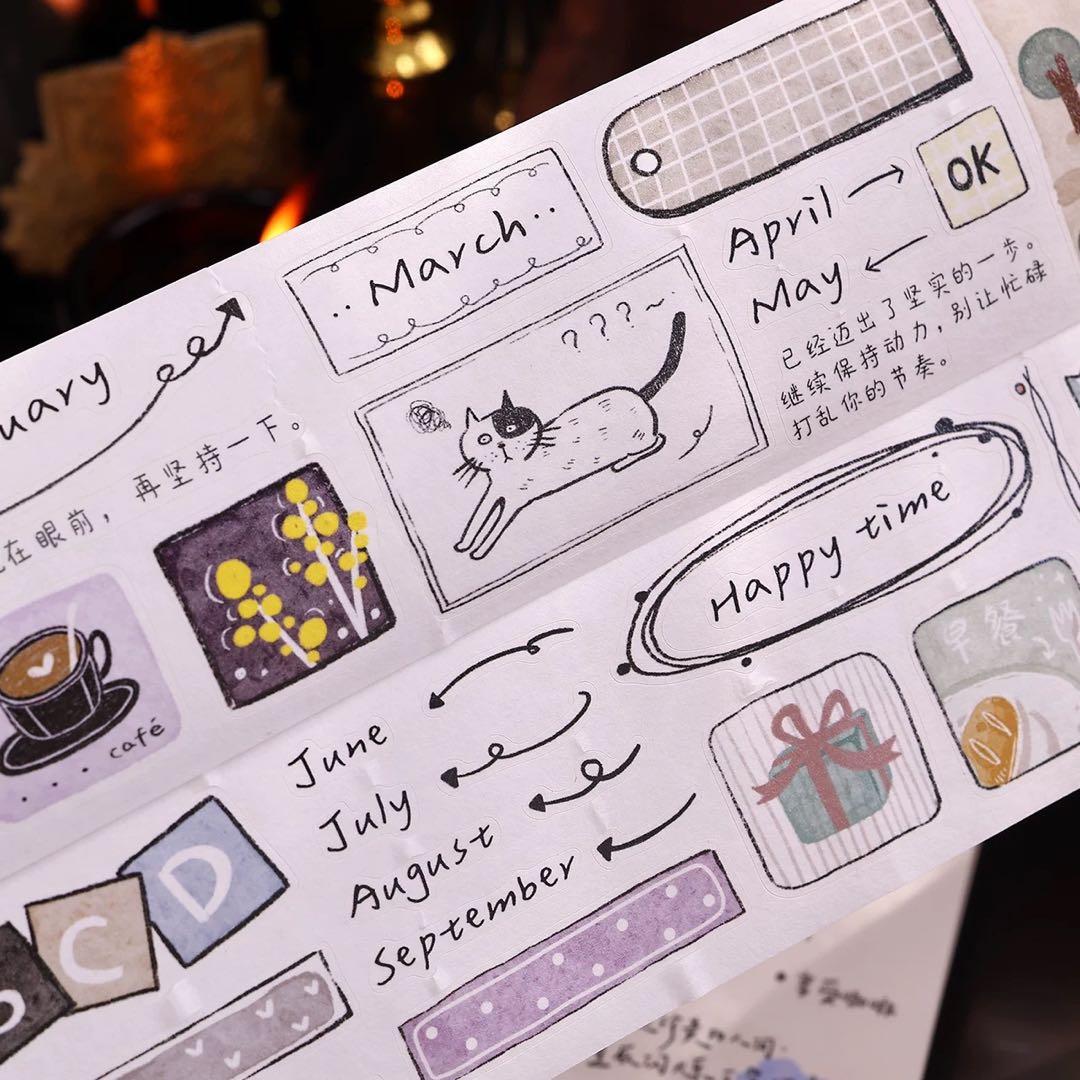 uary
..March..
April
May
OK
已经迈出了坚实的一步。
继续保持动力，别让忙碌
打乱你的节奏。
???~
在眼前，再坚持一下。
café
Happy time
早餐
June
July
August
September
C
D